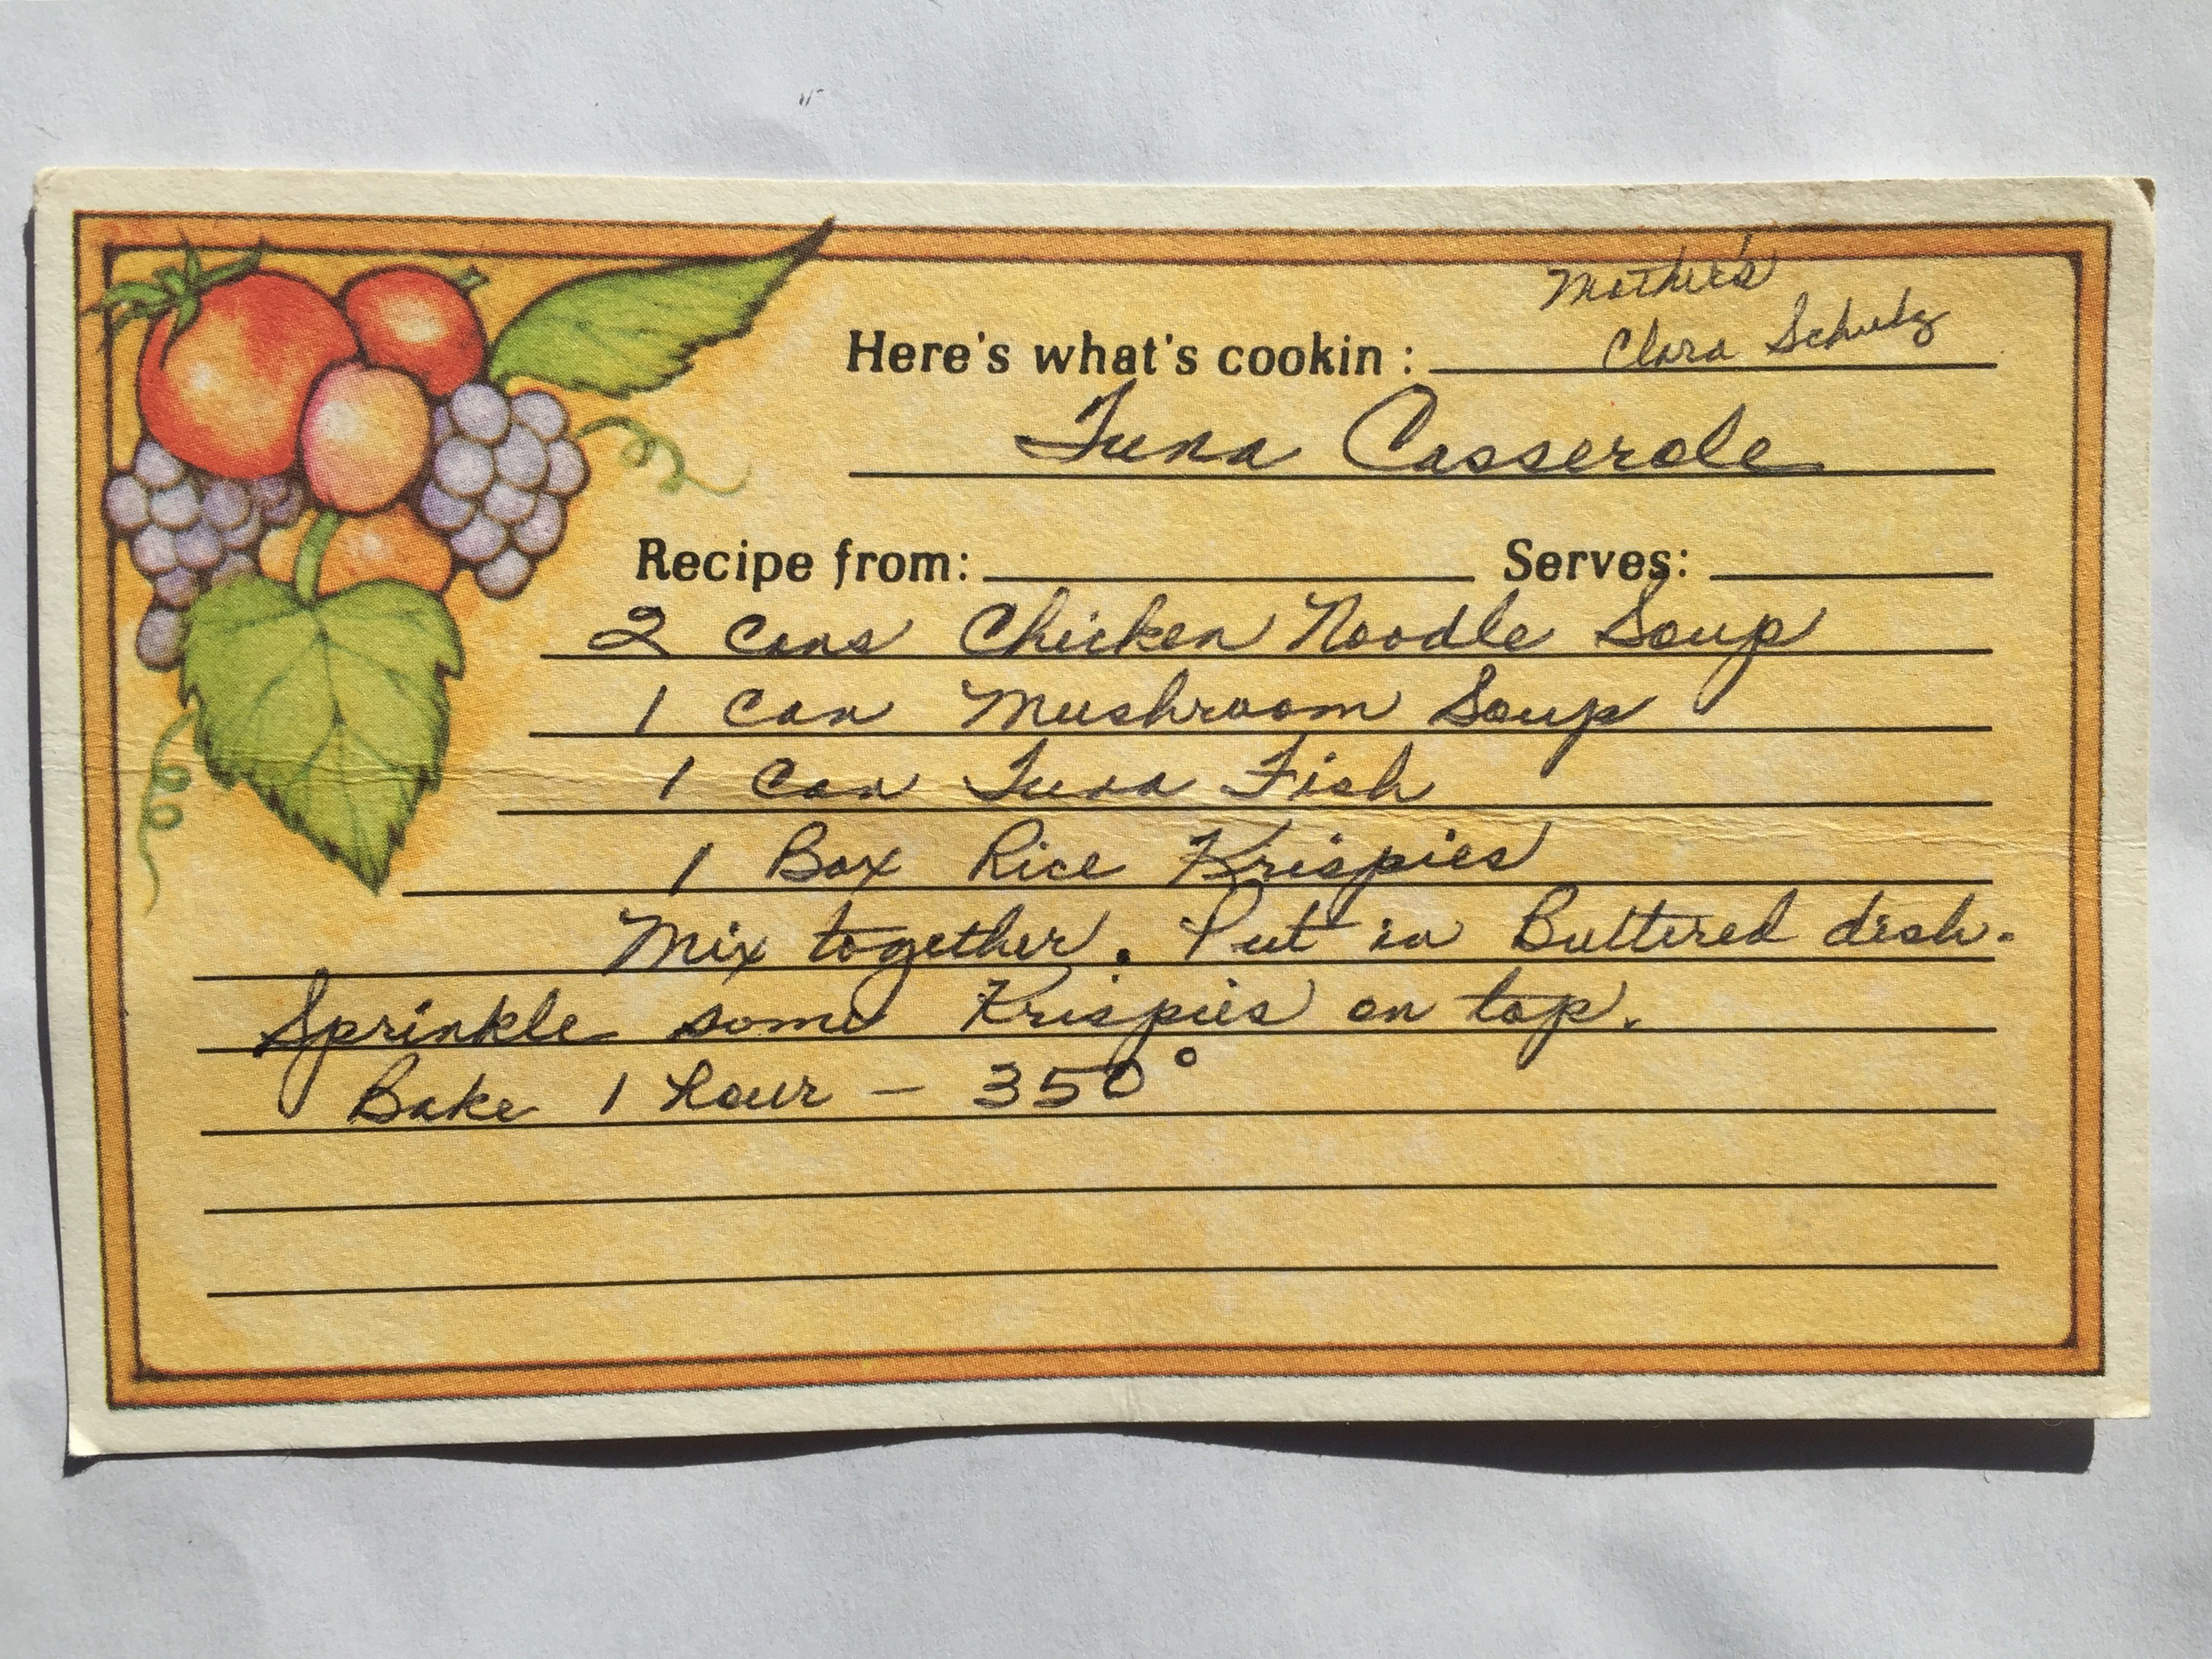 Mother's
Here's what's cookin : Clara Schulz
Tuna Casserole
Recipe from: Serves:
2 Cans Chicken Noodle Soup
1 Can Mushroom Soup
1 Can Tuna Fish
1 Box Rice Krispies
Mix together. Put in Buttered dish.
Sprinkle some Krispies on top.
Bake 1 Hour - 350°